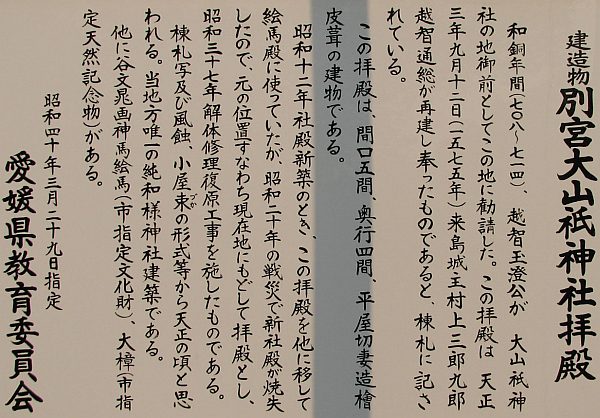 建造物 別宮大山祇神社拝殿
和銅年間(七〇八~七一四)、越智玉澄公が 大山祇神
社の地御前としてこの地に勧請した。この拝殿は 天正
三年九月十二日(一五七五年)来島城主村上三郎九郎
越智通総が再建し奉ったものであると、棟札に記さ
れている。
この拝殿は、間口五間、奥行四間、平屋切妻造檜
皮葺の建物である。
昭和十二年社殿新築のとき、この拝殿を他に移して
絵馬殿に使っていたが、昭和二十年の戦災で新社殿が焼失
したので、元の位置すなわち現在地にもどして拝殿とし、
昭和三十七年解体修理復原工事を施したものである。
棟札写及び風蝕、小屋束の形式等から天正の頃と思
われる。当地方唯一の純和様神社建築である。
他に谷文晁画神馬絵馬(市指定文化財)、大樟(市指
定天然記念物)がある。
昭和四十年三月二十九日指定
愛媛県教育委員会